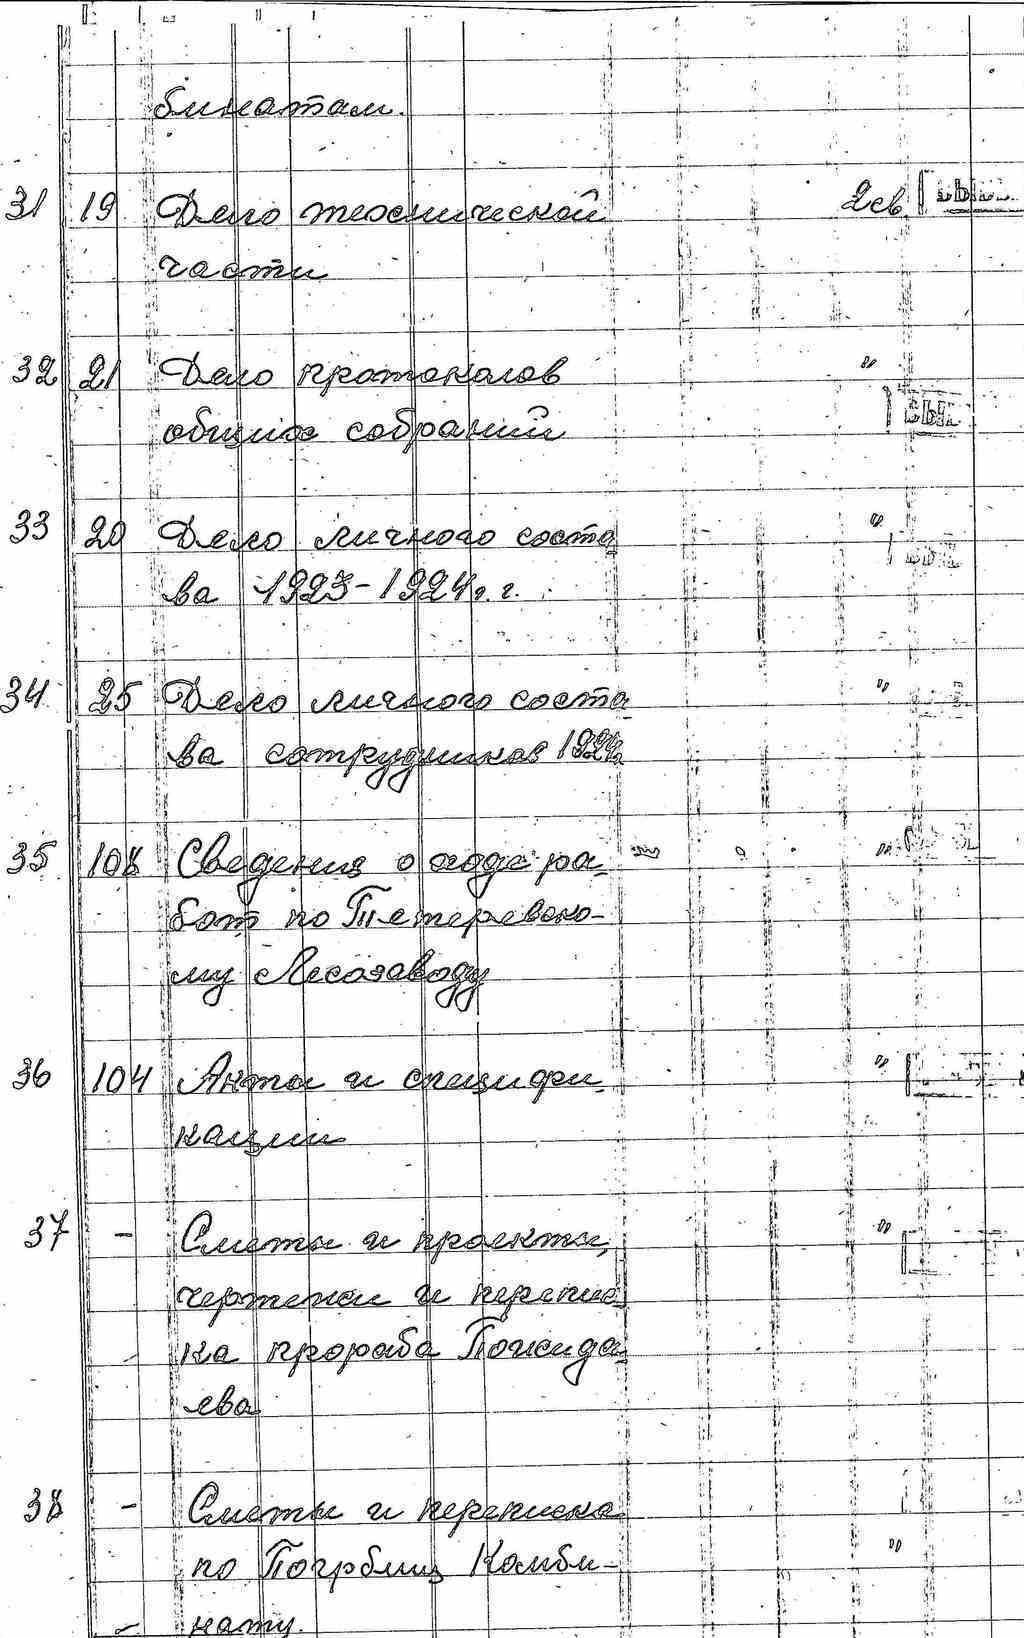 бинатам.
31 19 Дело технической 2 св.
части
32 21 Дело протоколов "
общих собраний
33 20 Дело личного соста "
ва 1923-1924г.г.
34 25 Дело личного соста "
ва сотрудников 1924г.
35 108 Сведения о ходе ра- "
бот по Тетеревско-
му Лесозаводу
36 104 Акты и специфи "
кации
37 - Сметы и проекты, "
чертежи и перепис
ка прораба Пожида
ева
38 - Сметы и переписка
по Комби- "
- нату.